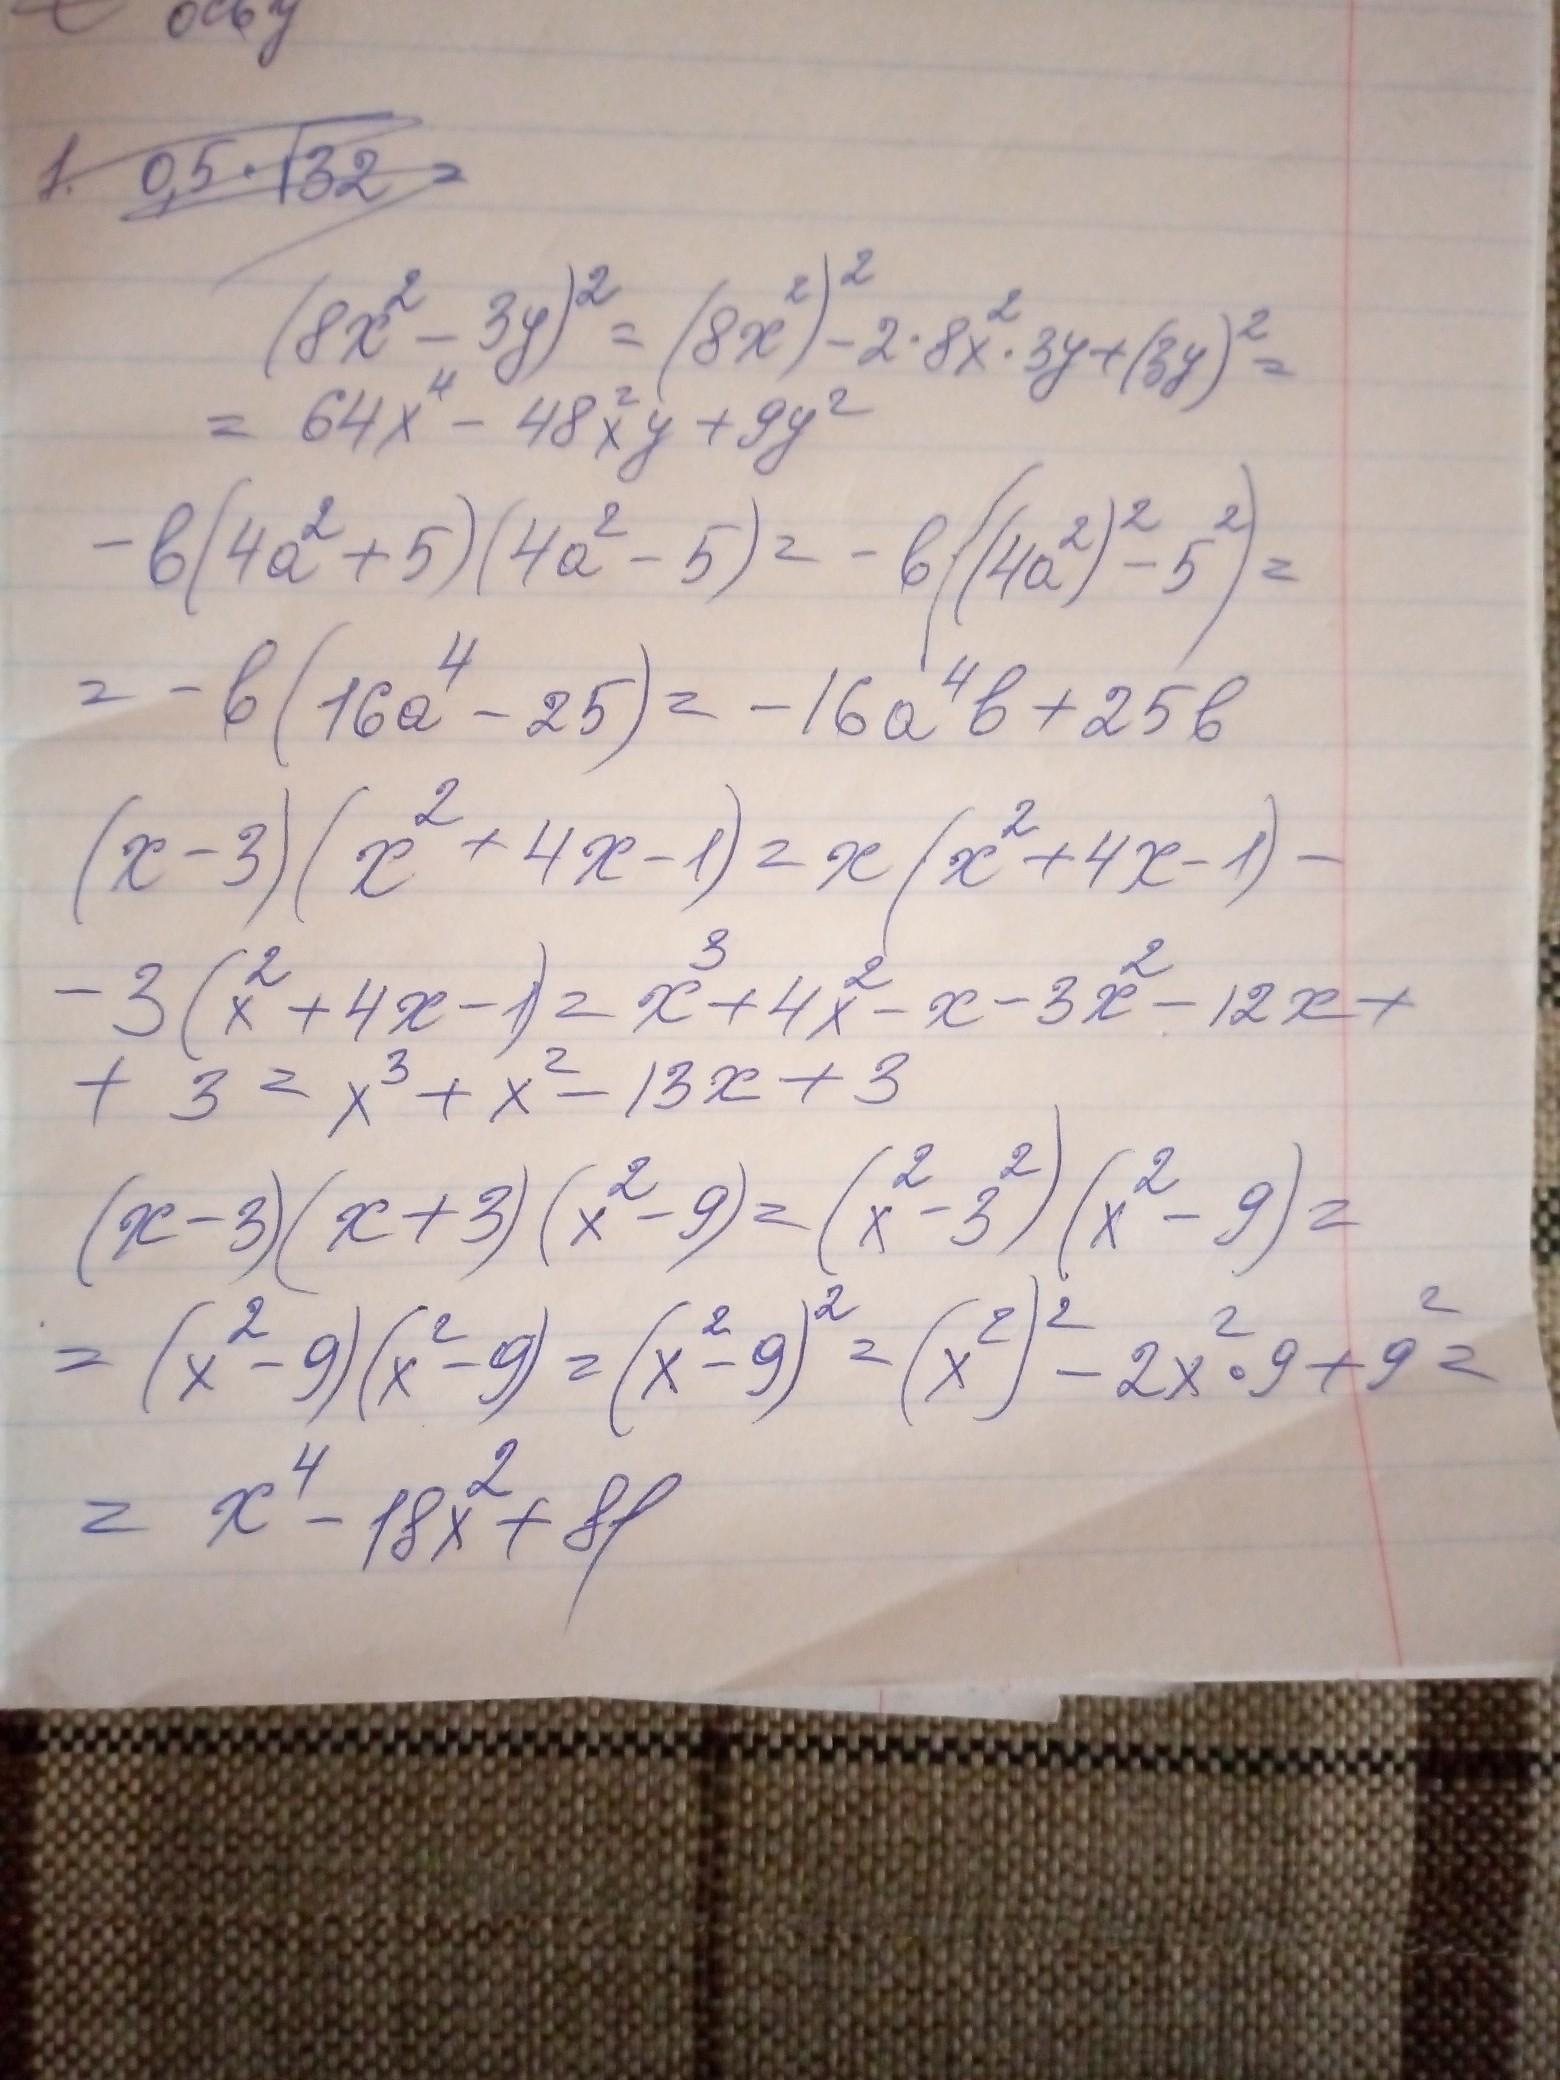 1. 0,5·√32 =
(8x² - 3y)² = (8x²)² - 2·8x²·3y + (3y)² =
= 64x⁴ - 48x²y + 9y²
- b(4a² + 5)(4a² - 5) = - b((4a²)² - 5²) =
= - b(16a⁴ - 25) = - 16a⁴b + 25b
(x - 3)(x² + 4x - 1) = x(x² + 4x - 1) -
- 3(x² + 4x - 1) = x³ + 4x² - x - 3x² - 12x +
+ 3 = x³ + x² - 13x + 3
(x - 3)(x + 3)(x² - 9) = (x² - 3²)(x² - 9) =
= (x² - 9)(x² - 9) = (x² - 9)² = (x²)² - 2x²·9 + 9² =
= x⁴ - 18x² + 81